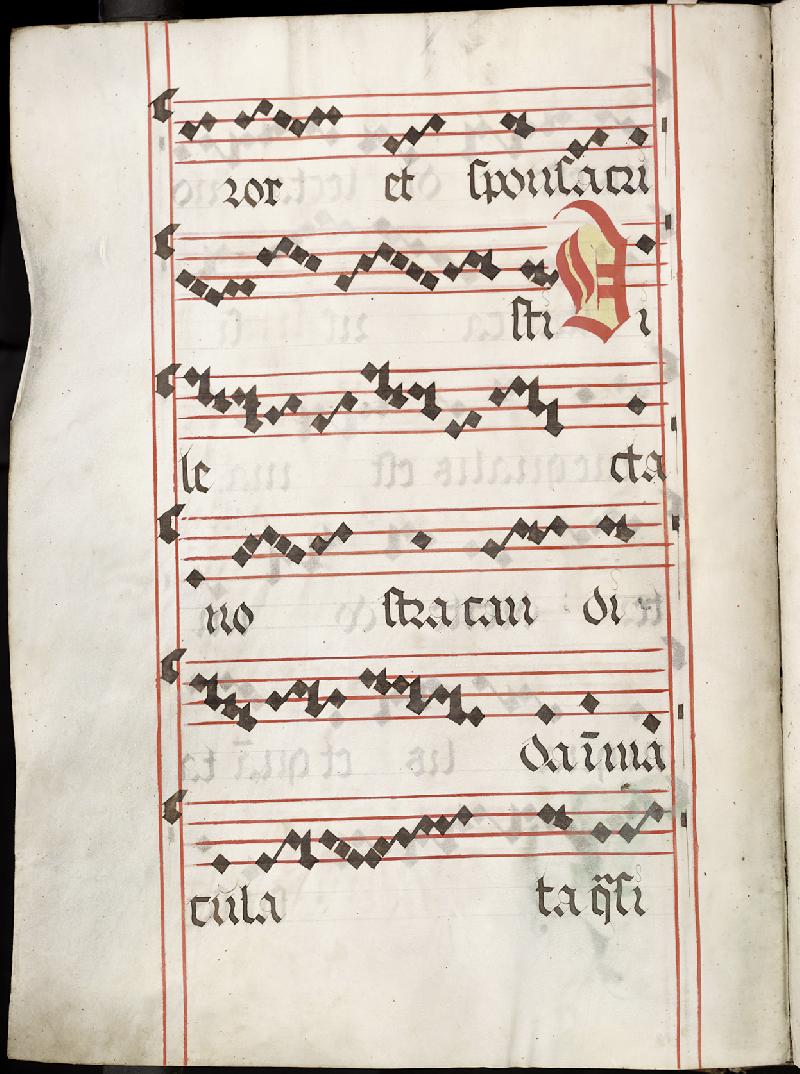 ror et sponsa cri
sti Di
le cta
no stra can di
da īma
cula ta q̄si